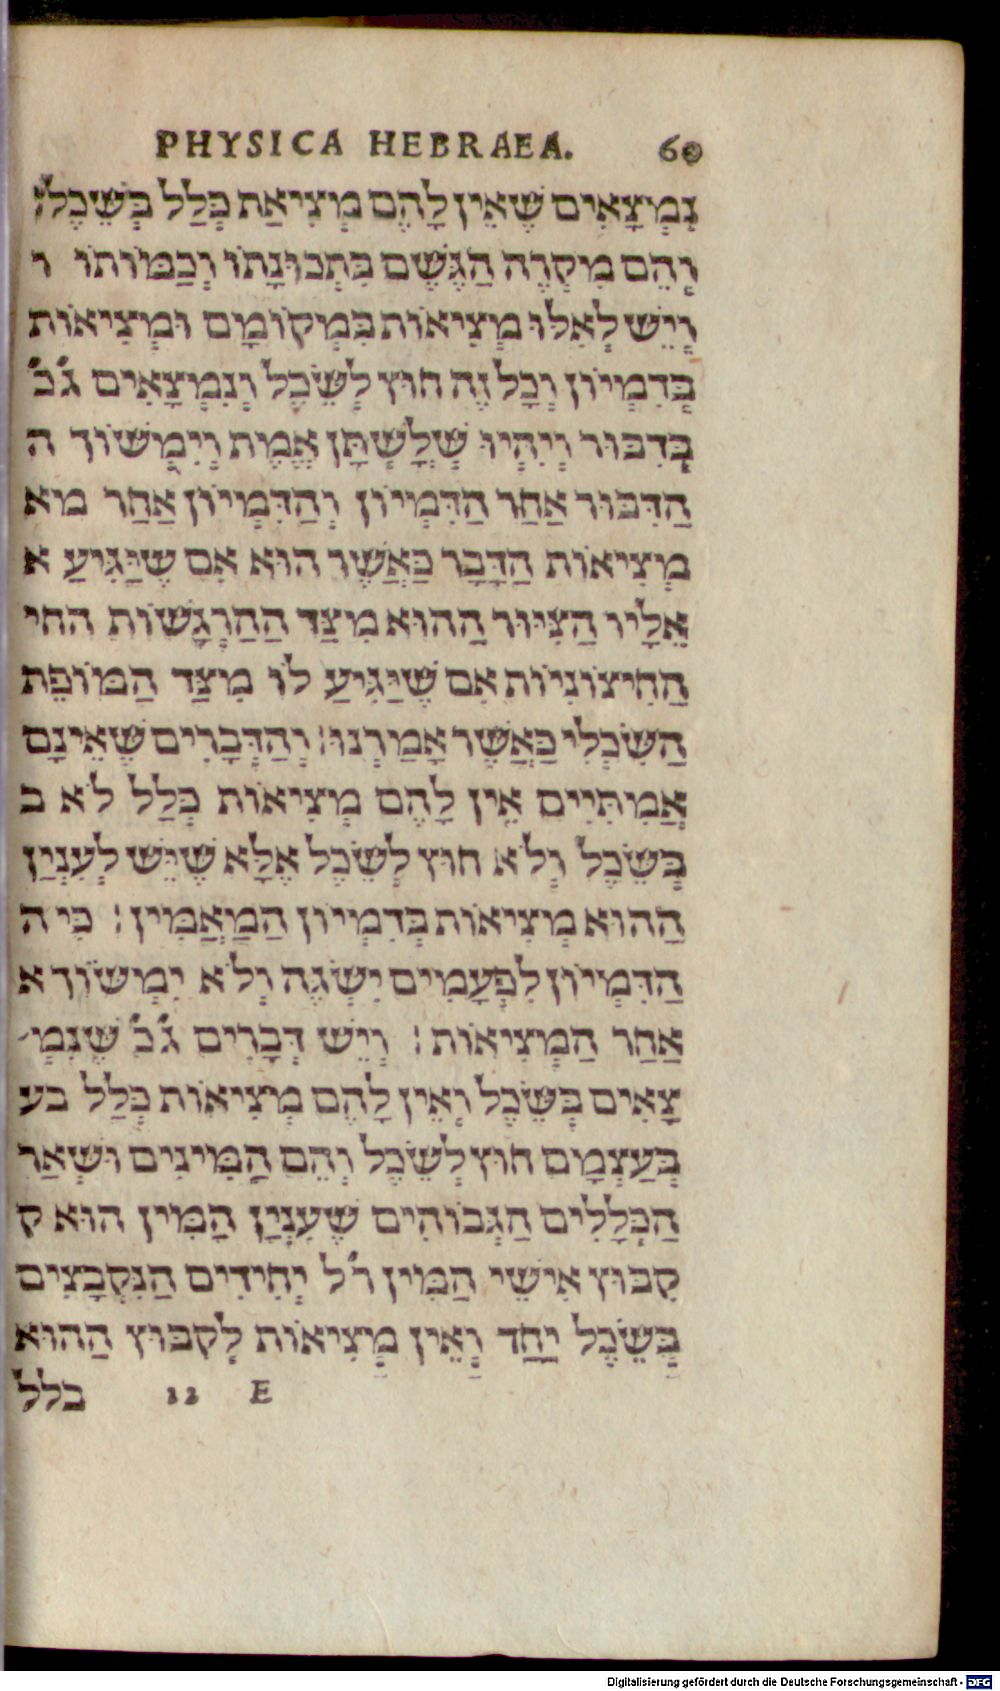 PHYSICA HEBRAEA. 60
נִמְצָאִים שֶׁאֵין לָהֶם מְצִיאַת כְּלַל בְּשֵׂכֶל׃
וְהֵם מִקְרֶה הַגֶּשֶׁם כִּתְכוּנָתוֹ וְכַמּוֹתוֹ ו
וְיֵשׁ לְאִלּוּ מְצִיאוֹת בִּמְקוֹמָם וּמְצִיאוֹת
בְּדִמְיוֹן וְכָל זֶה חוּץ לְשֵׂכֶל וְנִמְצָאִים ג֞כ֞
בְּדִבּוּר וְיִהְיוּ שְׁלָשְׁתָּן אֱמֶת וְיִמְשׁוֹךְ ה
הַדִּבּוּר אַחַר הַדִּמְיוֹן וְהַדִּמְיוֹן אַחַר מא
מְצִיאוֹת הַדָּבָר כַּאֲשֶׁר הוּא אִם שֶׁיַּגִּיעַ א
אֵלָיו הַצִּיּוּר הַהוּא מִצַּד הַהַרְגָּשׁוֹת החי
הַחִיצוֹנִיּוֹת אִם שֶׁיַּגִּיעַ לוֹ מִצַּד הַמּוֹפֵת
הַשִּׂכְלִי כַּאֲשֶׁר אָמַרְנוּ׃ וְהַדְּבָרִים שֶׁאֵינָם
אֲמִתִּיִּים אֵין לָהֶם מְצִיאוֹת כְּלַל לֹא ב
בְּשֵׂכֶל וְלֹא חוּץ לְשֵׂכֶל אֶלָּא שֶׁיֵּשׁ לְעִנְיַן
הַהוּא מְצִיאוֹת בְּדִמְיוֹן הַמַּאֲמִין׃ כִּי ה
הַדִּמְיוֹן לִפְעָמִים יִשְׁגֶּה וְלֹא יִמְשׁוֹךְ א
אַחַר הַמְּצִיאוֹת׃ וְיֵשׁ דְּבָרִים ג֞כ֞ שֶׁנִּמְ־
צָאִים בְּשֵׂכֶל וְאֵין לָהֶם מְצִיאוֹת כְּלַל בע
בְּעַצְמָם חוּץ לְשֵׂכֶל וְהֵם הַמִּינִים וּשְׁאַר
הַכְּלָלִים הַגְּבוֹהִים שֶׁעִנְיַן הַמִּין הוּא ק
קִבּוּץ אִישֵׁי הַמִּין ר֞ל יְחִידִים הַנִּקְבָּצִים
בְּשֵׂכֶל יַחַד וְאֵין מְצִיאוֹת לְקִבּוּץ הַהוּא
E 12 כלל
Digitalisierung gefördert durch die Deutsche Forschungsgemeinschaft - DFG